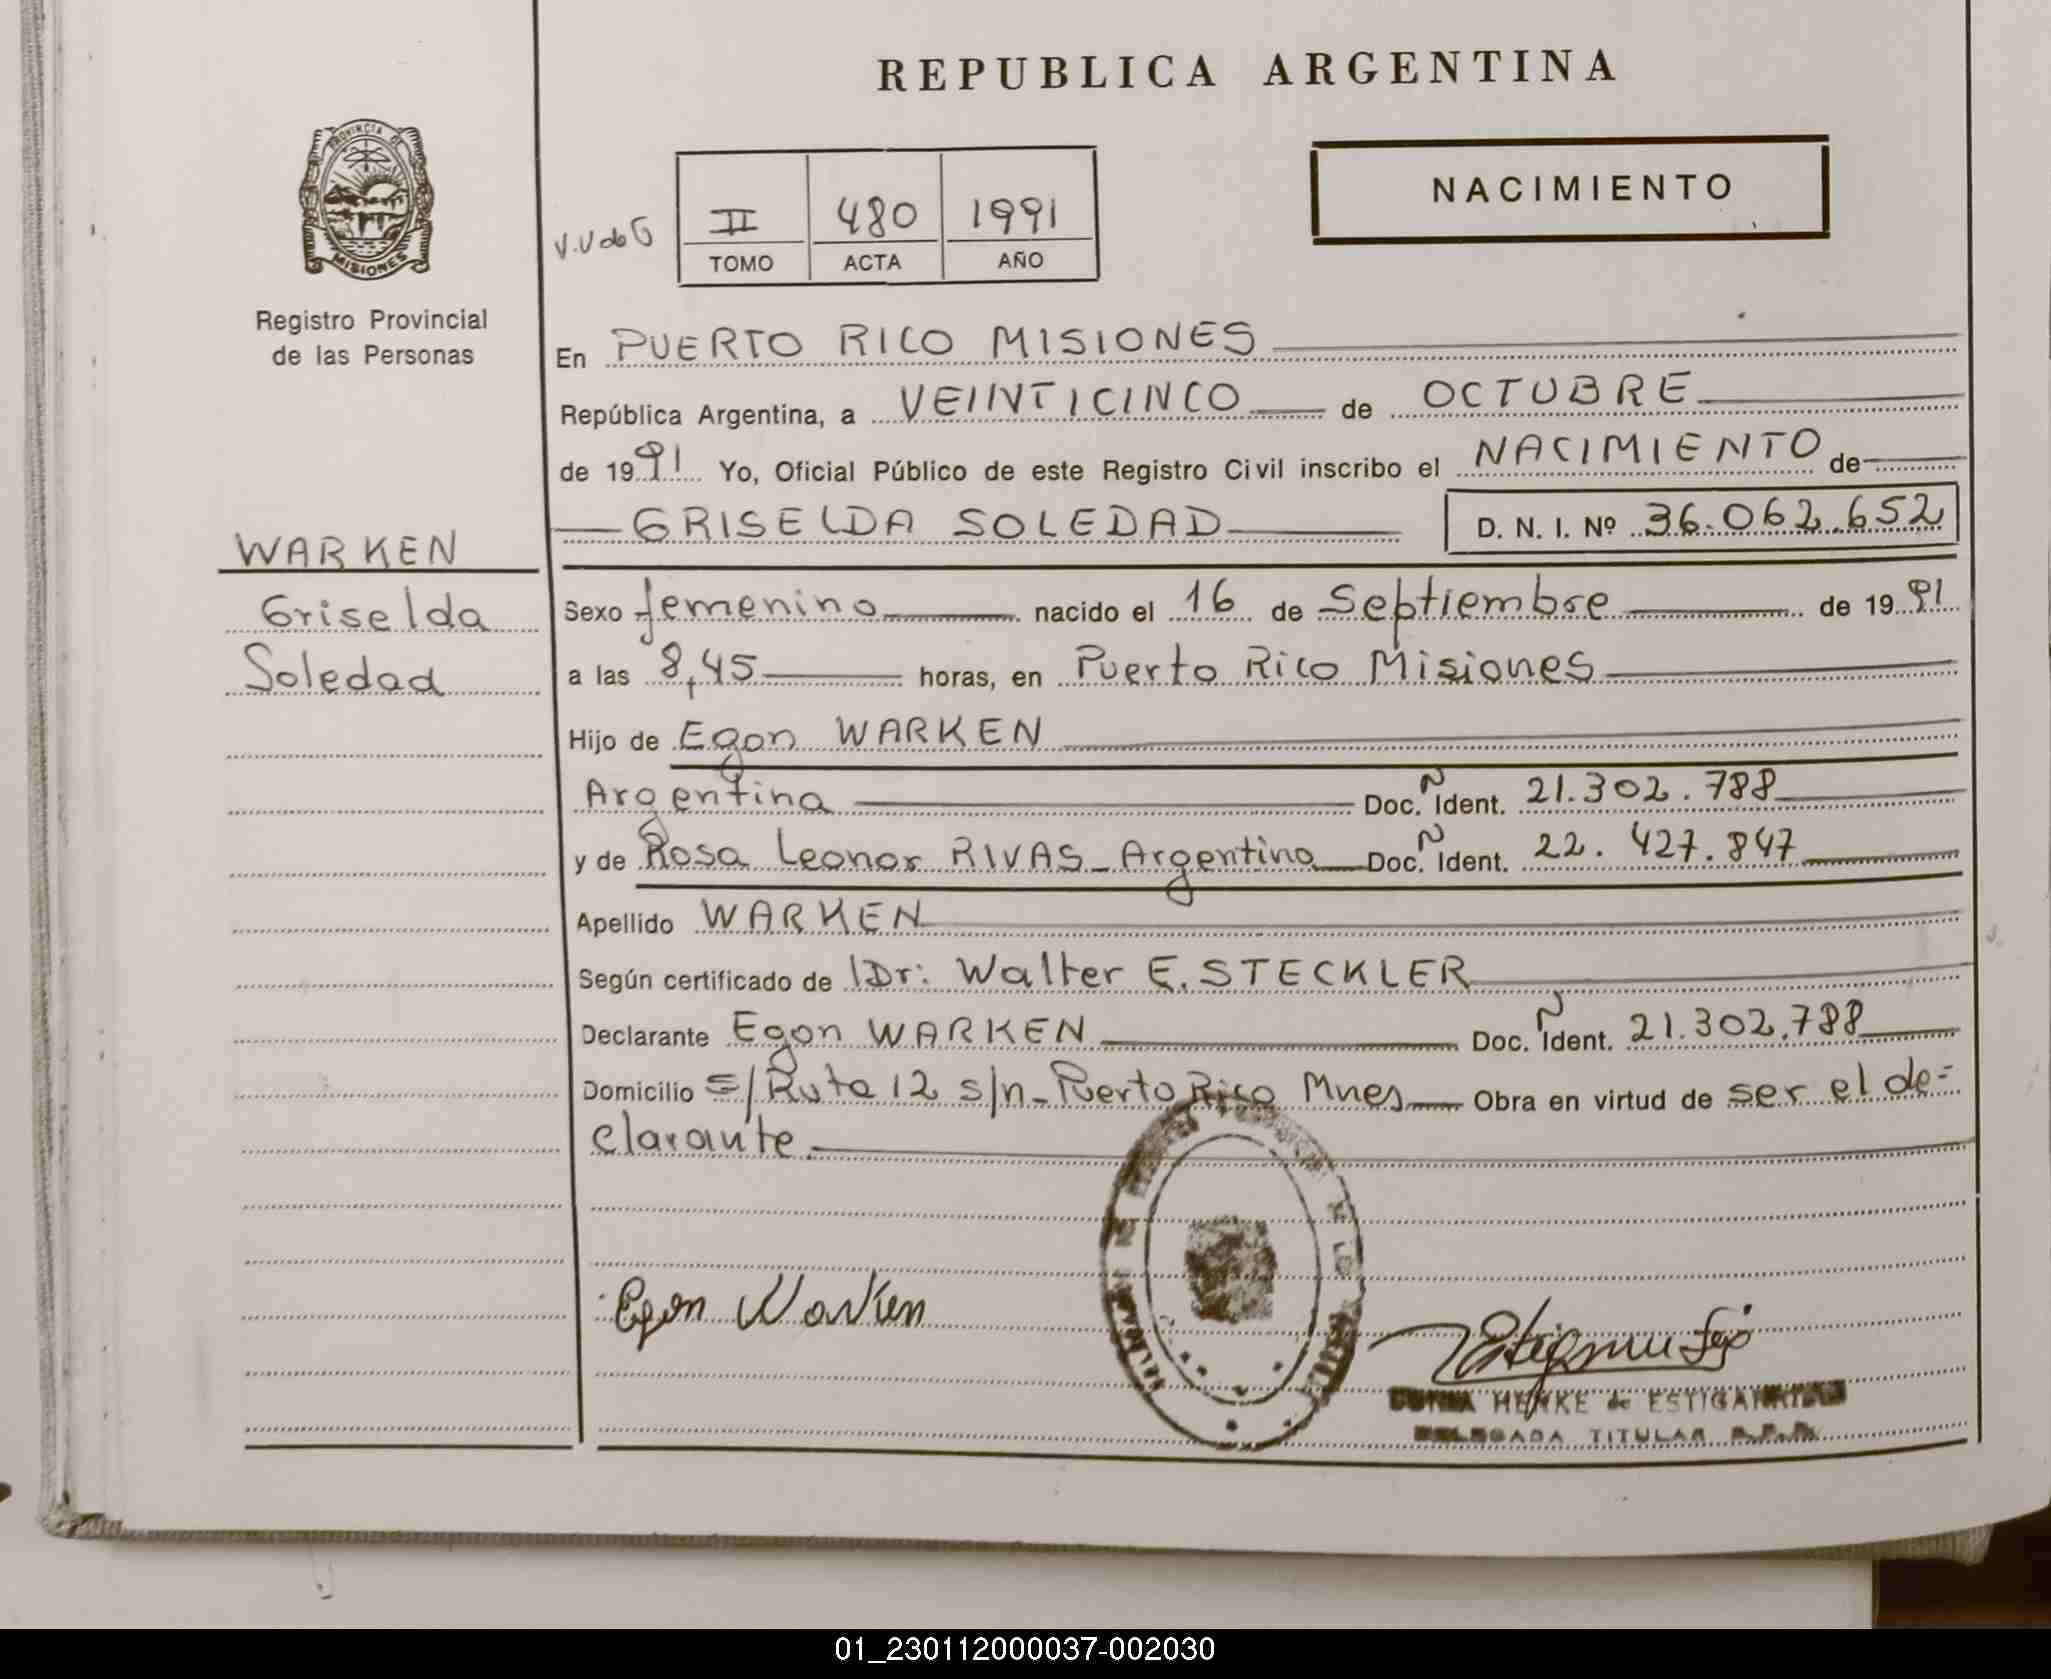 REPUBLICA ARGENTINA
PROVINCIA DE
MISIONES
Registro Provincial
de las Personas
V.V de G
II 480 1991
TOMO ACTA AÑO
NACIMIENTO
En PUERTO RICO MISIONES
República Argentina, a VEINTICINCO de OCTUBRE
de 1991 Yo, Oficial Público de este Registro Civil inscribo el NACIMIENTO de
GRISELDA SOLEDAD D. N. I. Nº 36.062.652
WARKEN
Griselda
Soledad
Sexo femenino nacido el 16 de Septiembre de 1991
a las 8,45 horas, en Puerto Rico Misiones
Hijo de Egon WARKEN
Argentina Doc. Ñ Ident. 21.302.788
y de Rosa Leonor RIVAS - Argentina Doc. Ñ Ident. 22.427.847
Apellido WARKEN
Según certificado de Dr: Walter E. STECKLER
Declarante Egon WARKEN Doc. Ñ Ident. 21.302.788
Domicilio s/ Ruta 12 s/n - Puerto Rico Mnes Obra en virtud de ser el de=
clarante
Egon Warken
HENKE de ESTIGARRIBIA
DELEGADA TITULAR R.P.P.
01_230112000037-002030